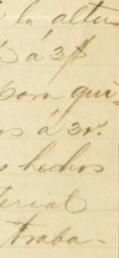 la altu-
á 3f
para qui-
os á 3v.
hechos
terial
traba-